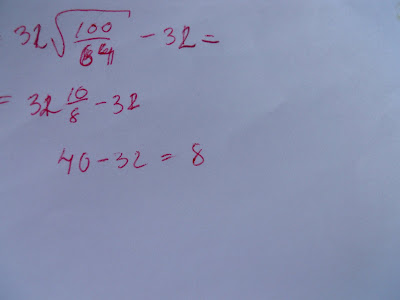 = 32√(100/64) - 32 =
= 32 10/8 - 32
40 - 32 = 8